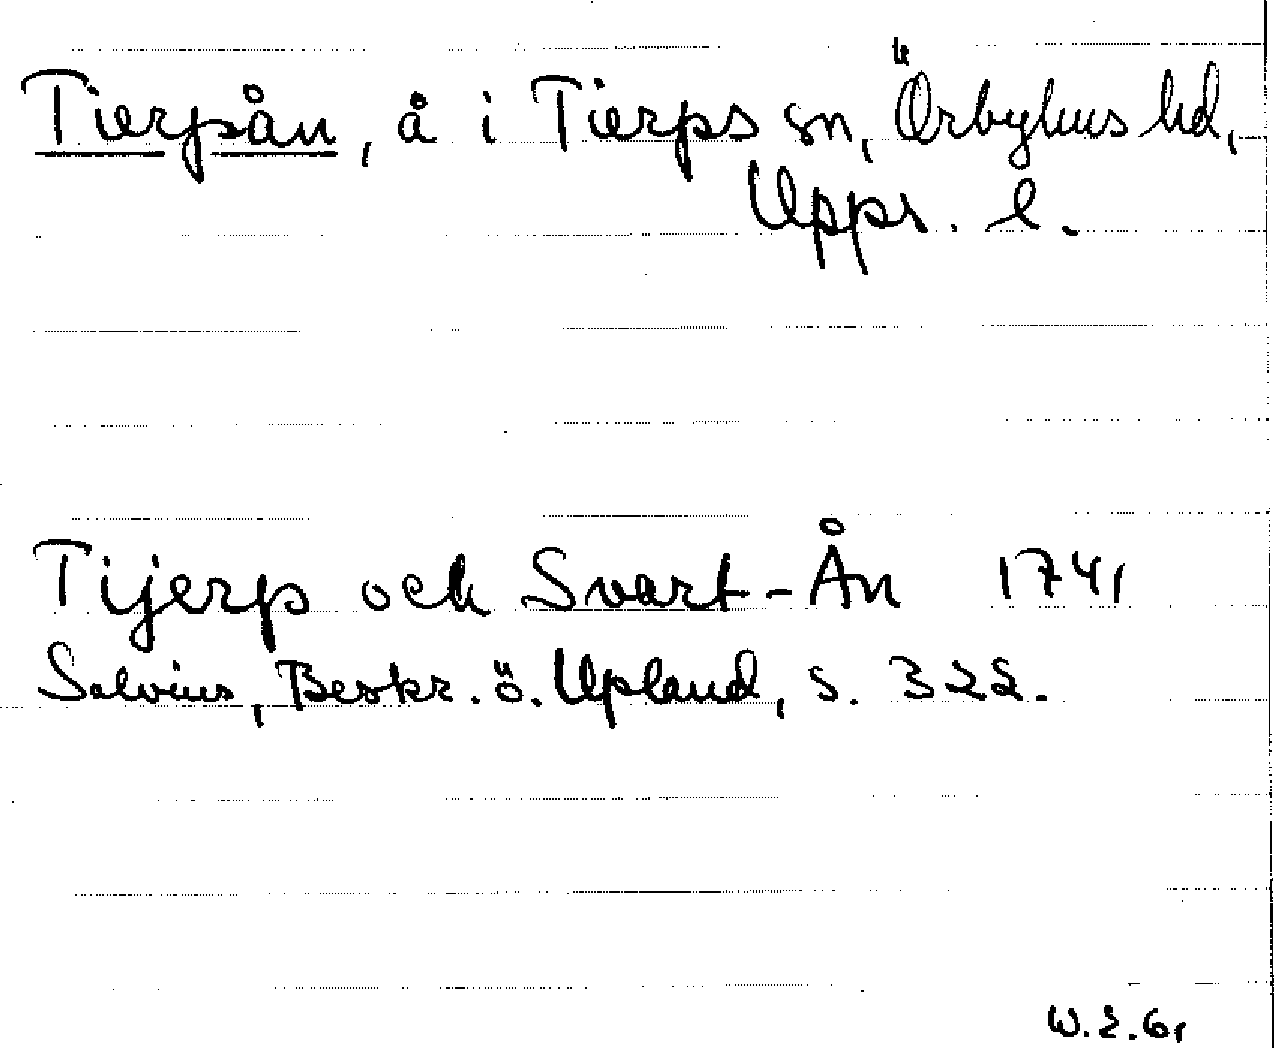 Tierpån, å i Tierps sn, Örbyhus hd,
Upps. l.
Tijerp och Svart-Ån 1741
Salvius, Beskr. ö. Upland, s. 322.
W.E. 61